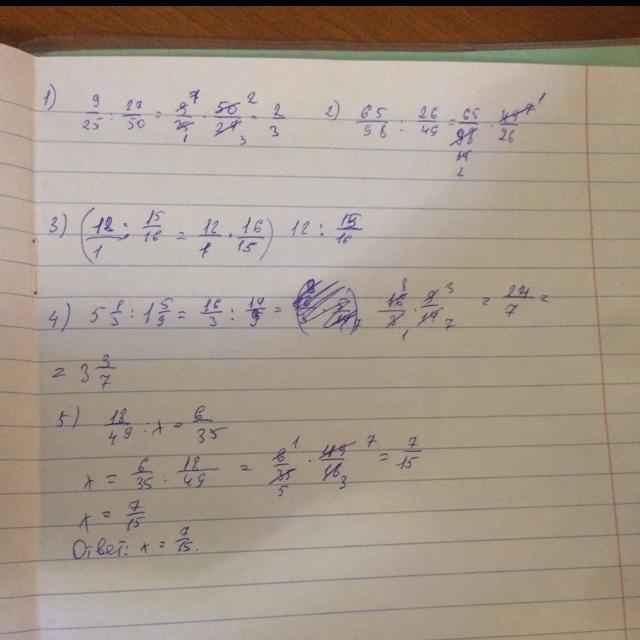 1) 9/25 : 27/50 = 9/25 · 50/27 = 2/3 2) 65/98 : 26/49 = 65/98 · 49/26
3) (12/1 : 15/16 = 12/1 · 16/15) 12 : 15/16
4) 5 1/3 : 1 5/9 = 16/3 : 14/9 = 16/3 · 9/14 = 24/7 =
= 3 3/7
5) 18/49 : x = 6/35
x = 6/35 : 18/49 = 6/35 · 49/18 = 7/15
x = 7/15
Ответ: x = 7/15.